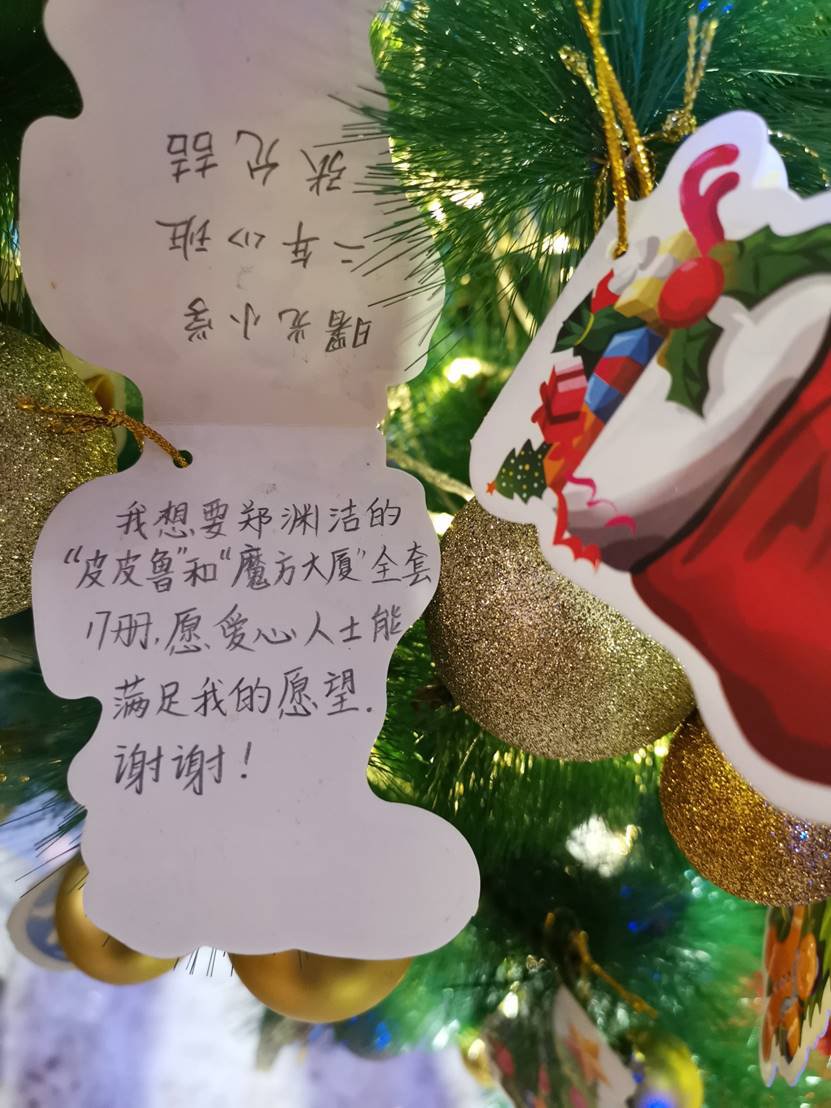 曙光小学
二年(1)班
张允喆
我想要郑渊洁的
“皮皮鲁”和“魔方大厦”全套
17册,愿爱心人士能
满足我的愿望.
谢谢!